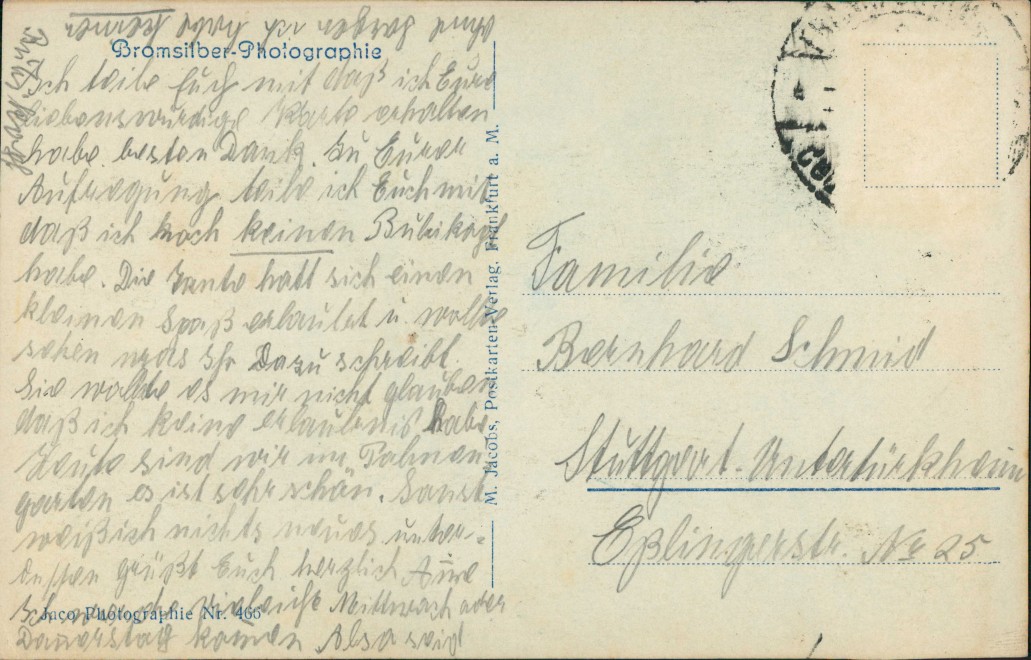 Bromsilber-Photographie
Ich teile Euch mit daß ich Eure
liebenswürdige Karte erhalten
habe. besten Dank. Zu Eurer
Aufregung teile ich Euch mit
daß ich noch keinen Bubikopf
habe. Die Tante hatt sich einen
kleinen Spaß erlaubt u. wollte
sehen was Ihr Dazu schreibt.
Sie wollte es mir nicht glauben
daß ich keine erlaubnis habe
Heute sind wir im Palmen
garten es ist sehr schön. Sonst
weiß ich nichts neues unter-
dessen grüßt Euch herzlich
vieleicht Mittwoch oder
Donerstag komen Also seid
ohne Sorgen ich habe keinen
Jaco Photographie Nr. 466
M. Jacobs, Postkarten-Verlag, Frankfurt a. M.
Familie
Bernhard Schmid
Stuttgart-Untertürkheim
Eßlingerstr. Nr 25